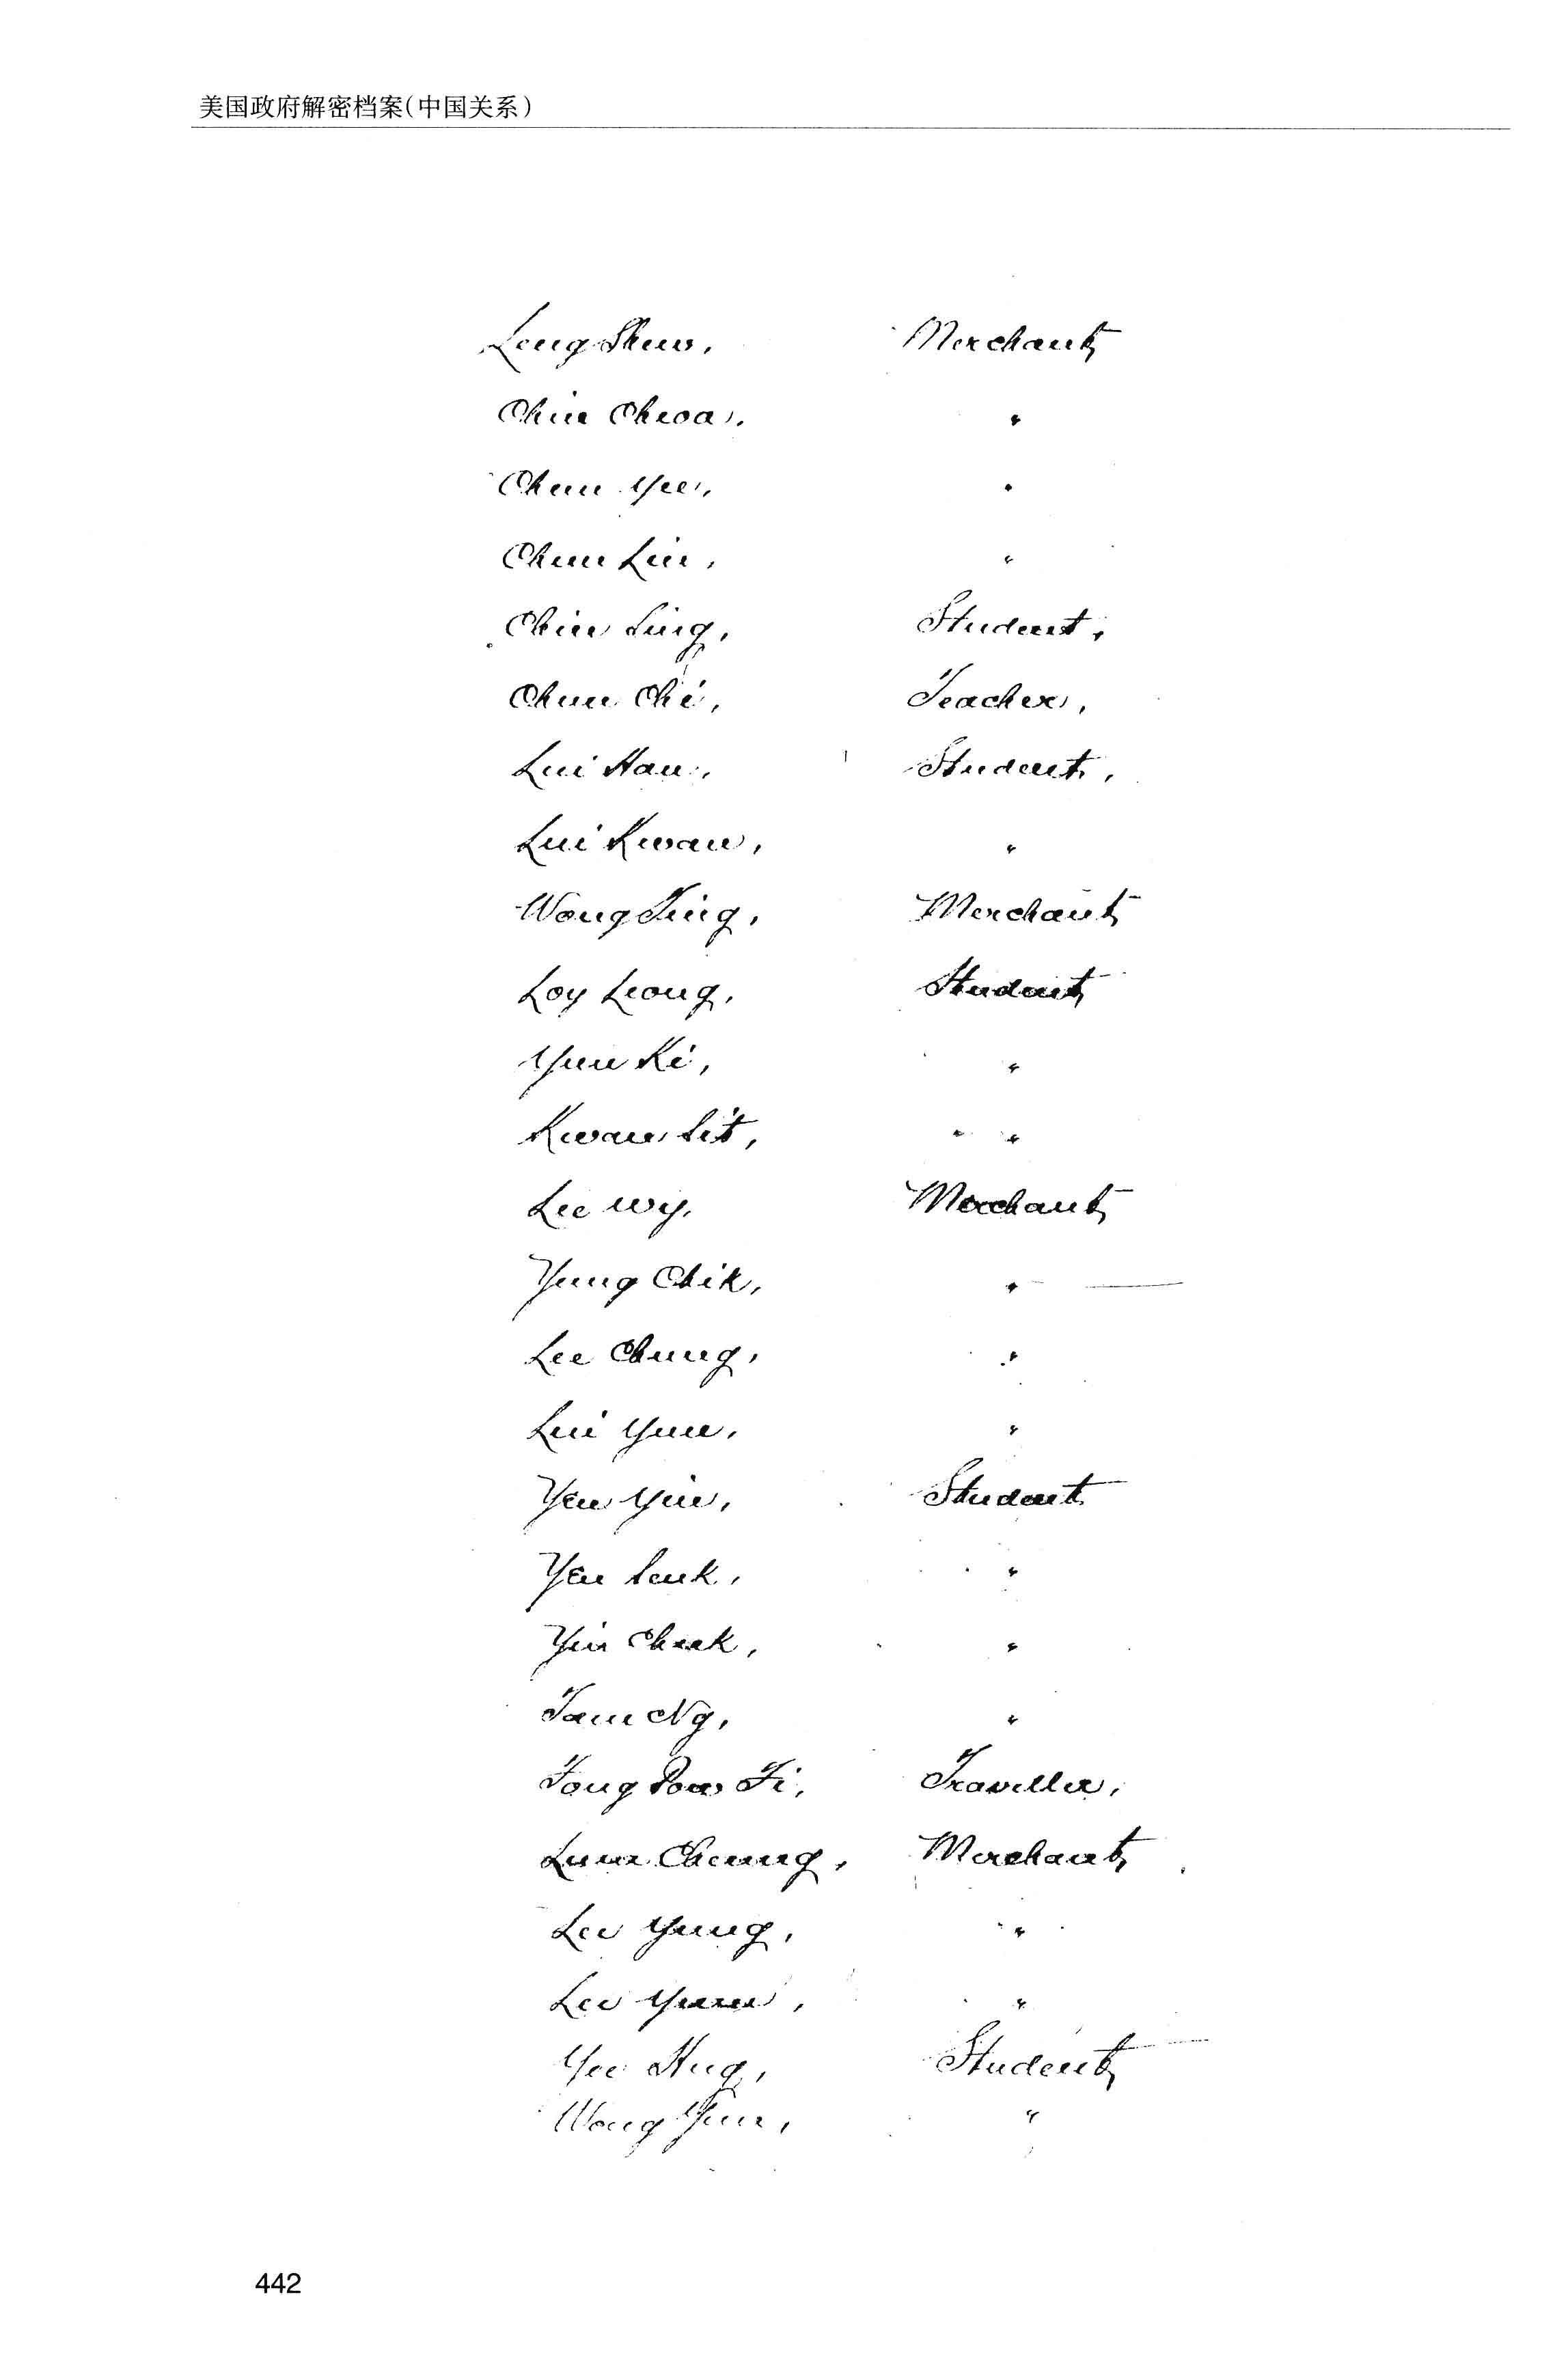 美国政府解密档案(中国关系)
Leng Shew, Merchant,
Chin Chwa, "
Chun Yee, "
Chun Lin, "
Chin Sing, Student,
Chun Chi, Teacher,
Lui Han, Student,
Lui Kwan, "
Wong Ting, Merchant,
Loy Leong, Student,
Yun Ki, "
Kwan Sit, "
Lee Wy, Merchant,
Yung Chik, "
Lee Chung, "
Lui Yun, "
Yen Yin, Student
Yen Suk, "
Yin Cheuk, "
Tam Ng, "
Tong Pow Fi, Traveller,
Lum Cheung, Merchant,
Lee Yung, "
Lee Yuen, "
Yee Hug, Student,
Wong Yun, "
442